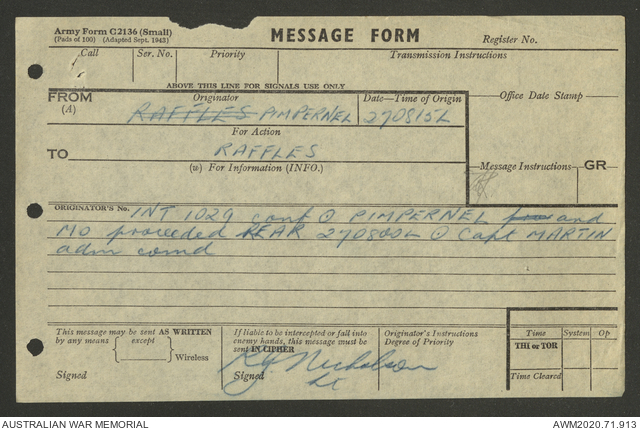 Army Form C2136 (Small)
(Pads of 100) (Adapted Sept. 1943)
MESSAGE FORM
Register No.
Call
Ser. No.
Priority
Transmission Instructions
ABOVE THIS LINE FOR SIGNALS USE ONLY
FROM
(A)
Originator
RAFFLES PIMPERNEL
Date—Time of Origin
270815L
Office Date Stamp
For Action
TO
RAFFLES
(W) For Information (INFO.)
Message Instructions
GR
ORIGINATOR'S No.
INT 1029 conf ⊙ PIMPERNEL and
MO proceeded REAR 270800L ⊙ Capt MARTIN
adm comd
This message may be sent AS WRITTEN
by any means except
Wireless
Signed
If liable to be intercepted or fall into
enemy hands, this message must be
sent IN CIPHER
Signed
Nicholson
Lt
Originator's Instructions
Degree of Priority
Time
System
Op
THI or TOR
Time Cleared
AUSTRALIAN WAR MEMORIAL
AWM2020.71.913